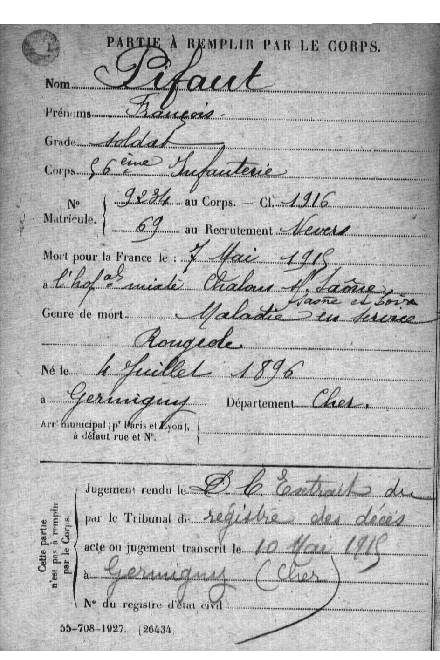 PARTIE À REMPLIR PAR LE CORPS.
Nom Pifaut
Prénoms François
Grade soldat
Corps 56ème Infanterie
N° Matricule. 9234 au Corps. — Cl. 1916
69 au Recrutement Nevers
Mort pour la France le : 7 Mai 1915
à l'hopal mixte Chalons s/ Saône
Saône et Loire
Genre de mort Maladie en service
Rougeole
Né le 4 Juillet 1896
à Germigny Département Cher.
Arrt municipal (pr Paris et Lyon),
à défaut rue et N°.
Cette partie n'est pas à remplir par le Corps.
Jugement rendu le D C Extrait du
par le Tribunal de registre des décès
acte ou jugement transcrit le 10 Mai 1915
à Germigny (Cher)
N° du registre d'état civil
55-708-1927. [26434.